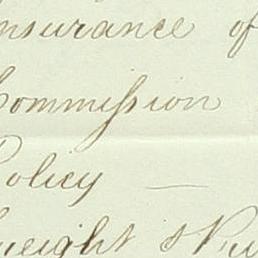 nsurance of
Commission
Policy —
weight &